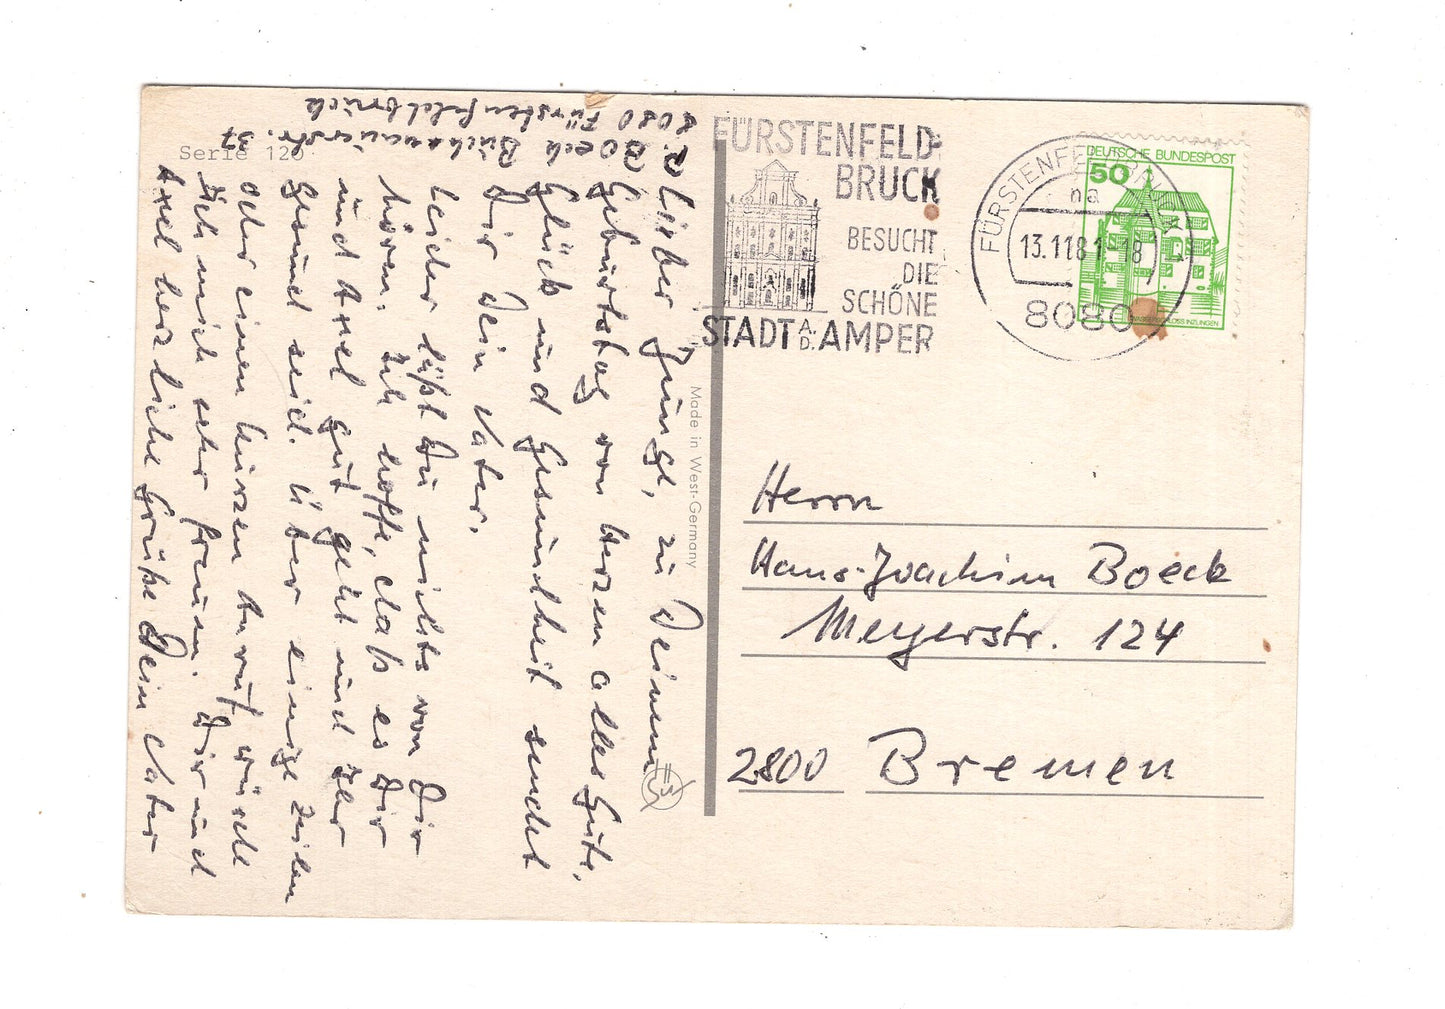 Serie 120
R. Boeck Buchenauerstr. 37
8080 Fürstenfeldbruck
Lieber Junge, zu Deinem
Geburtstag von Herzen alles Gute,
Glück und Gesundheit sendet
Dir Dein Vater.
Leider läßt Du nichts von Dir
hören. Ich hoffe, daß es Dir
und Axel gut geht und Ihr
gesund seid. Über einige Zeilen
oder einen kurzen Anruf würde
ich mich sehr freuen. Dir und
Axel herzliche Grüße Dein Vater
Made in West-Germany
FÜRSTENFELD-
BRUCK
BESUCHT
DIE
SCHÖNE
STADT A.D. AMPER
FÜRSTENFELDBRUCK
na
13.11.81-18
8080
DEUTSCHE BUNDESPOST
50
WASSERSCHLOSS INZLINGEN
Herrn
Hans-Joachim Boeck
Meyerstr. 124
2800 Bremen